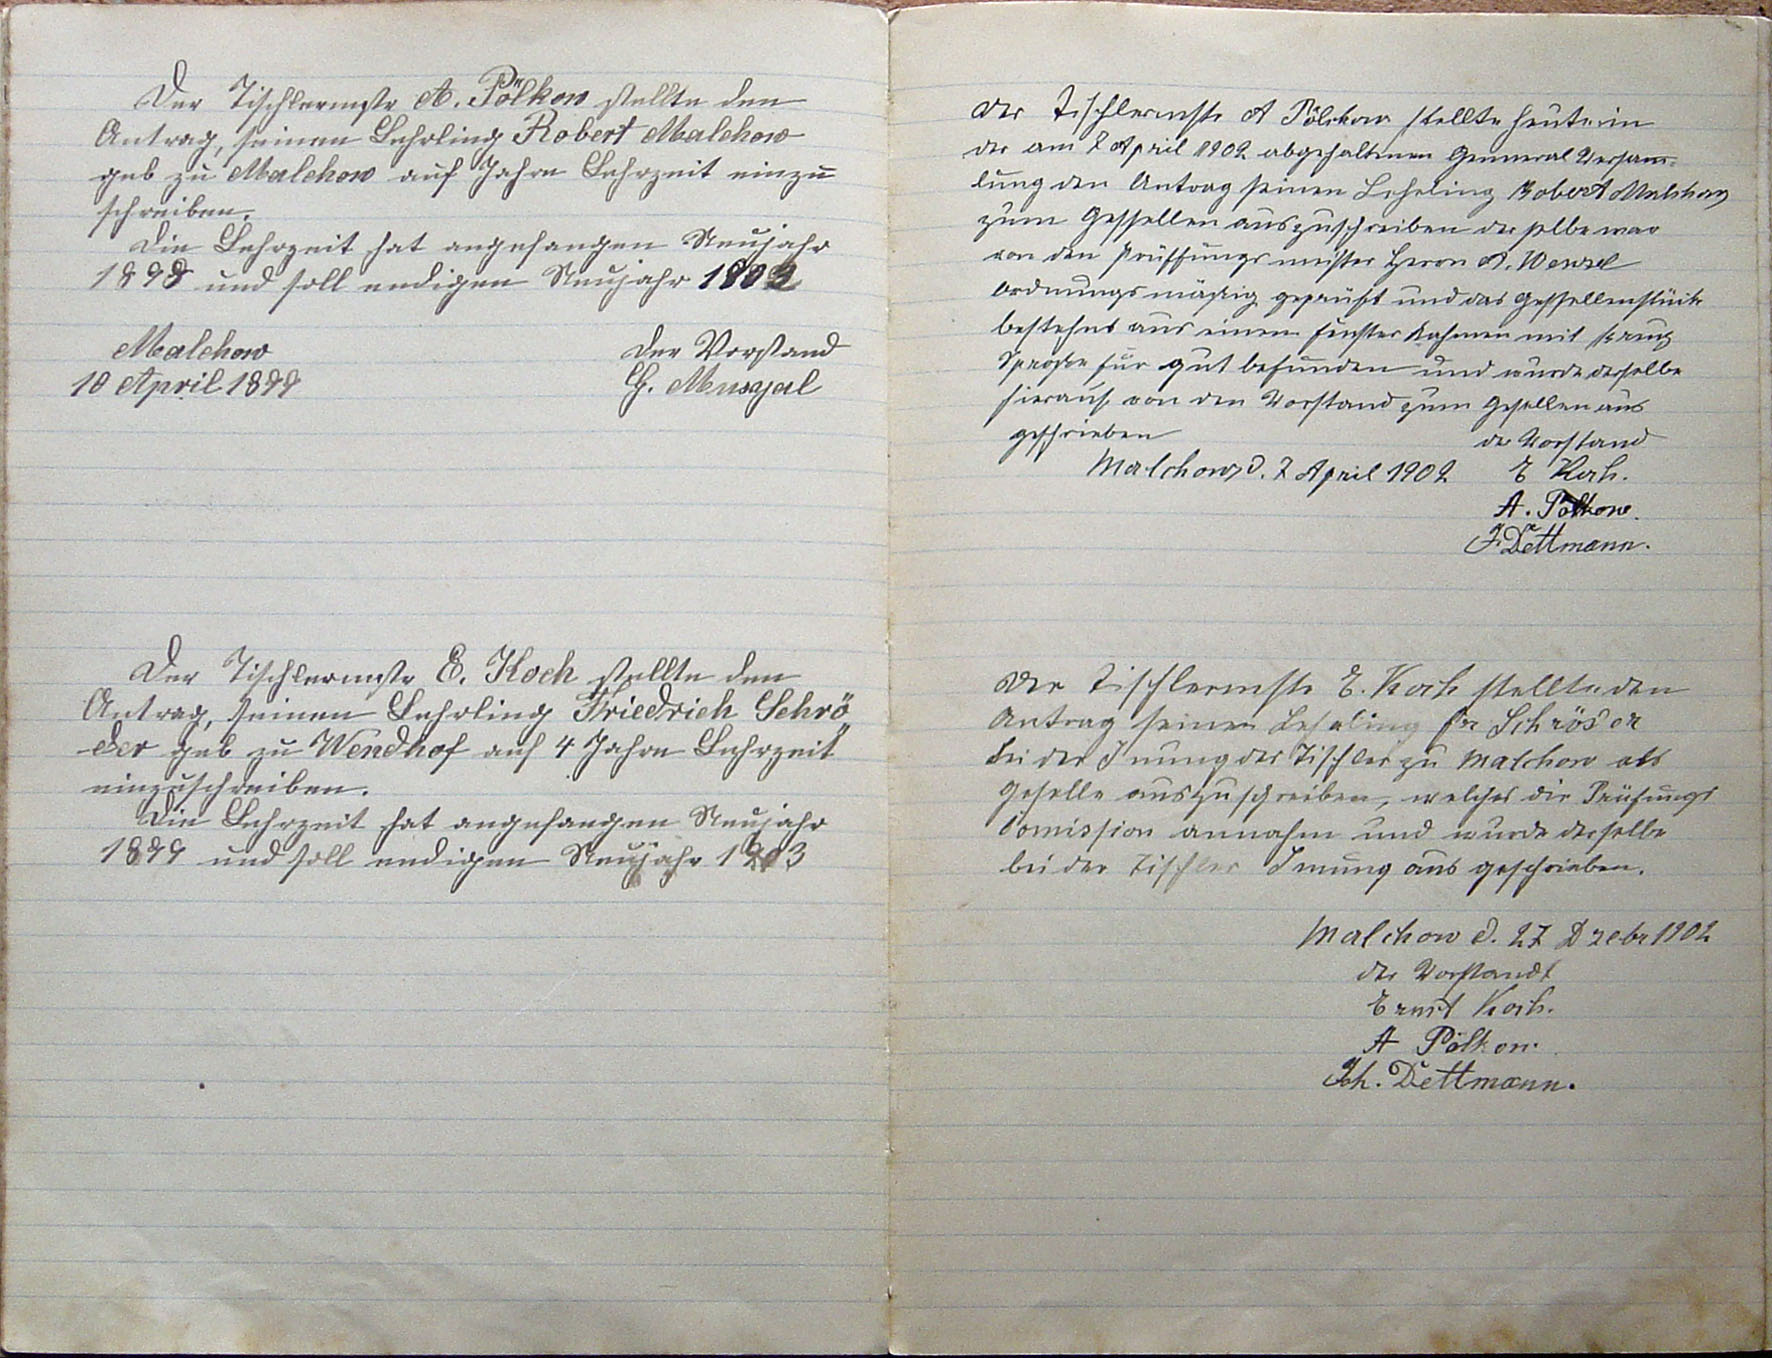 Der Tischlermstr A. Pölkow stellte den
Antrag, seinen Lehrling Robert Malchow
geb zu Malchow auf Jahre Lehrzeit einzu
schreiben.
Die Lehrzeit hat angefangen Neujahr
1898 und soll endigen Neujahr
Malchow
10 April 1899
Der Vorstand
G. Muszjal
Der Tischlermstr E. Koch stellte den
Antrag, seinen Lehrling Friedrich Schrö
der geb zu Wendhof auf 4 Jahre Lehrzeit
einzuschreiben.
Die Lehrzeit hat angefangen Neujahr
1899 und soll endigen Neujahr 1903
Der Tischlermstr A Pölckow stellte heute in
der am 7 April 1902 abgehaltenen Genneral Versam-
lung den Antrag seinen Lehrling Robert Malchow
zum Gessellen auszuschreiben derselbe war
von den Prüffungsmeister Herrn A. Wenzel
ordnungsmäßig geprüft und das Gessellenstück
bestehnt aus einem Fenster Rahmen mit Kreuz
Sprosse für gut befunden und wurde derselbe
hierauf von den Vorstand zum Gesellen aus
geschrieben
der Vorstand
Malchow, d. 7 April 1902
E Koch.
A. Pölkow.
J. Dettmann.
Der Tischlermstr E. Koch stellte den
Antrag seinen Lehrling Fr Schröder
bei der Innung der Tischler zu Malchow als
Geselle auszuschreiben, welches die Prüfungs
Comission annahm und wurde derselbe
bei der Tischler Innung aus geschrieben.
Malchow d. 27 Dzebr 1902
der Vorstandt
Ernst Koch.
A Pölkow.
Joh. Dettmann.